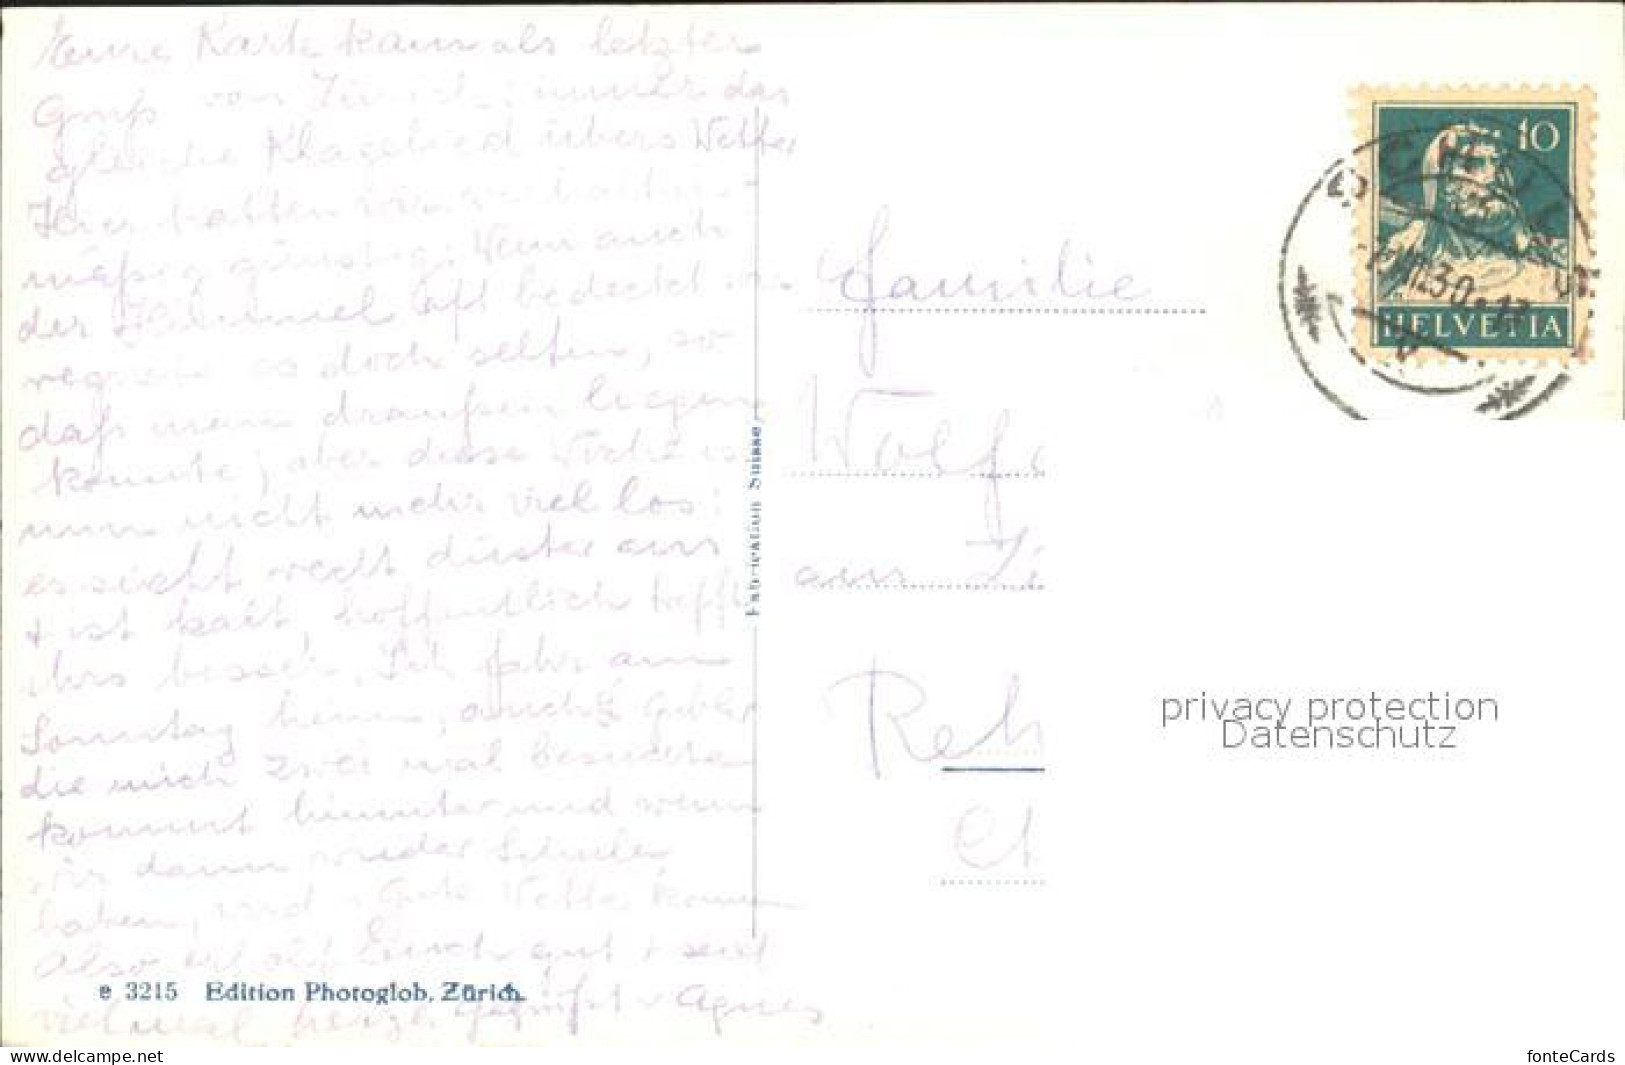 Eure Karte kam als letzter
Gruß von Zürich; immer das
gleiche Klagelied übers Wetter
Hier hatten wirs verhältnis-
mäßig günstig; Wenn auch
der Himmel oft bedeckt ist
regnete es doch selten, so
daß man draußen liegen
konnte; aber diese Woche ist
nun nicht mehr viel los:
es sieht recht düster aus
+ ist kalt, hoffentlich trefft
ihrs besser. Ich fahr am
Sonntag heim, auch
die mich zwei mal besuchte
kommt hinunter und wenn
wir dann wieder Schule
haben, wird gute Wetter kommen
Also Euch gut + seid
vielmal herzl. gegrüßt v Agnes
e 3215 Edition Photoglob, Zürich.
Fabrication Suisse
Familie
Wolf
aus
Reh
HELVETIA
10
privacy protection
Datenschutz
www.delcampe.net
fonteCards